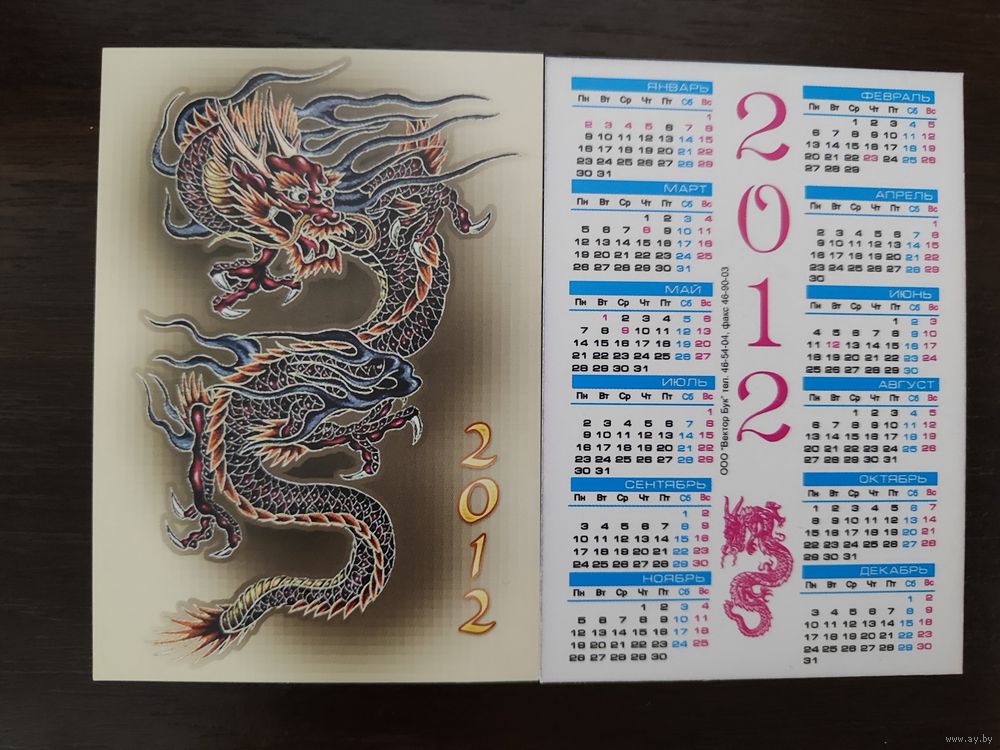 2012
ЯНВАРЬ
Пн Вт Ср Чт Пт Сб Вс
1
2 3 4 5 6 7 8
9 10 11 12 13 14 15
16 17 18 19 20 21 22
23 24 25 26 27 28 29
30 31
МАРТ
Пн Вт Ср Чт Пт Сб Вс
1 2 3 4
5 6 7 8 9 10 11
12 13 14 15 16 17 18
19 20 21 22 23 24 25
26 27 28 29 30 31
МАЙ
Пн Вт Ср Чт Пт Сб Вс
1 2 3 4 5 6
7 8 9 10 11 12 13
14 15 16 17 18 19 20
21 22 23 24 25 26 27
28 29 30 31
ИЮЛЬ
Пн Вт Ср Чт Пт Сб Вс
1
2 3 4 5 6 7 8
9 10 11 12 13 14 15
16 17 18 19 20 21 22
23 24 25 26 27 28 29
30 31
СЕНТЯБРЬ
Пн Вт Ср Чт Пт Сб Вс
1 2
3 4 5 6 7 8 9
10 11 12 13 14 15 16
17 18 19 20 21 22 23
24 25 26 27 28 29 30
НОЯБРЬ
Пн Вт Ср Чт Пт Сб Вс
1 2 3 4
5 6 7 8 9 10 11
12 13 14 15 16 17 18
19 20 21 22 23 24 25
26 27 28 29 30
2012
ООО "Вектор Бук" тел. 46-54-04, факс 46-90-03
ФЕВРАЛЬ
Пн Вт Ср Чт Пт Сб Вс
1 2 3 4 5
6 7 8 9 10 11 12
13 14 15 16 17 18 19
20 21 22 23 24 25 26
27 28 29
АПРЕЛЬ
Пн Вт Ср Чт Пт Сб Вс
1
2 3 4 5 6 7 8
9 10 11 12 13 14 15
16 17 18 19 20 21 22
23 24 25 26 27 28 29
30
ИЮНЬ
Пн Вт Ср Чт Пт Сб Вс
1 2 3
4 5 6 7 8 9 10
11 12 13 14 15 16 17
18 19 20 21 22 23 24
25 26 27 28 29 30
АВГУСТ
Пн Вт Ср Чт Пт Сб Вс
1 2 3 4 5
6 7 8 9 10 11 12
13 14 15 16 17 18 19
20 21 22 23 24 25 26
27 28 29 30 31
ОКТЯБРЬ
Пн Вт Ср Чт Пт Сб Вс
1 2 3 4 5 6 7
8 9 10 11 12 13 14
15 16 17 18 19 20 21
22 23 24 25 26 27 28
29 30 31
ДЕКАБРЬ
Пн Вт Ср Чт Пт Сб Вс
1 2
3 4 5 6 7 8 9
10 11 12 13 14 15 16
17 18 19 20 21 22 23
24 25 26 27 28 29 30
31
www.ay.by